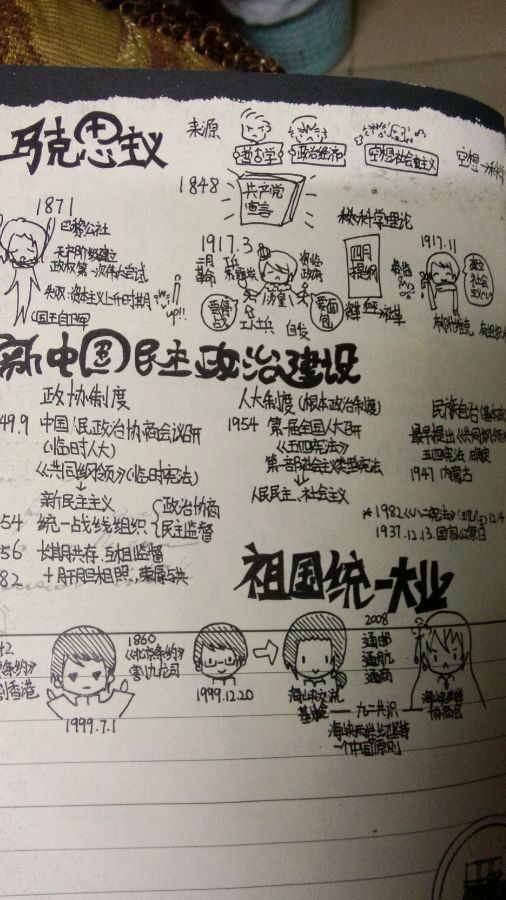 马克思主义
来源
哲古学 政治经济 空想社会主义
1848
共产党
宣言
核心科学理论
1871
巴黎公社
无产阶级建立
政权第一次伟大尝试
失败:资本主义上升时期
up!!
1917.3
二月
革命
沙皇
临临
政府
要面
包
工人士兵
自发
四月
提纲
1917.11
新中国民主政治建设
政协制度
49.9 中国人民政治协商会议召开
(临时人大)
《共同纲领》(临时宪法)
新民主主义
政治协商
民主监督
54 统一战线组织
56 长期共存、互相监督
82 肝胆相照,荣辱与共
人大制度(根本政治制度)
1954 第一届全国人大召开
《五四宪法》
第一部社会主义类型宪法
人民民主、社会主义
民族自治
最早提出《共同纲领》
五四宪法
1947 内蒙古
*1982《八二宪法》(现行) 12.4
1937.12.13 国家公祭日
祖国统一大业
42
割香港
1999.7.1
1860
《北京条约》
割九龙司
1999.12.20
海峡交流
基金会
2008
通邮
通航
通商
九二共识
海峡两岸均坚持
一个中国原则
海峡两岸